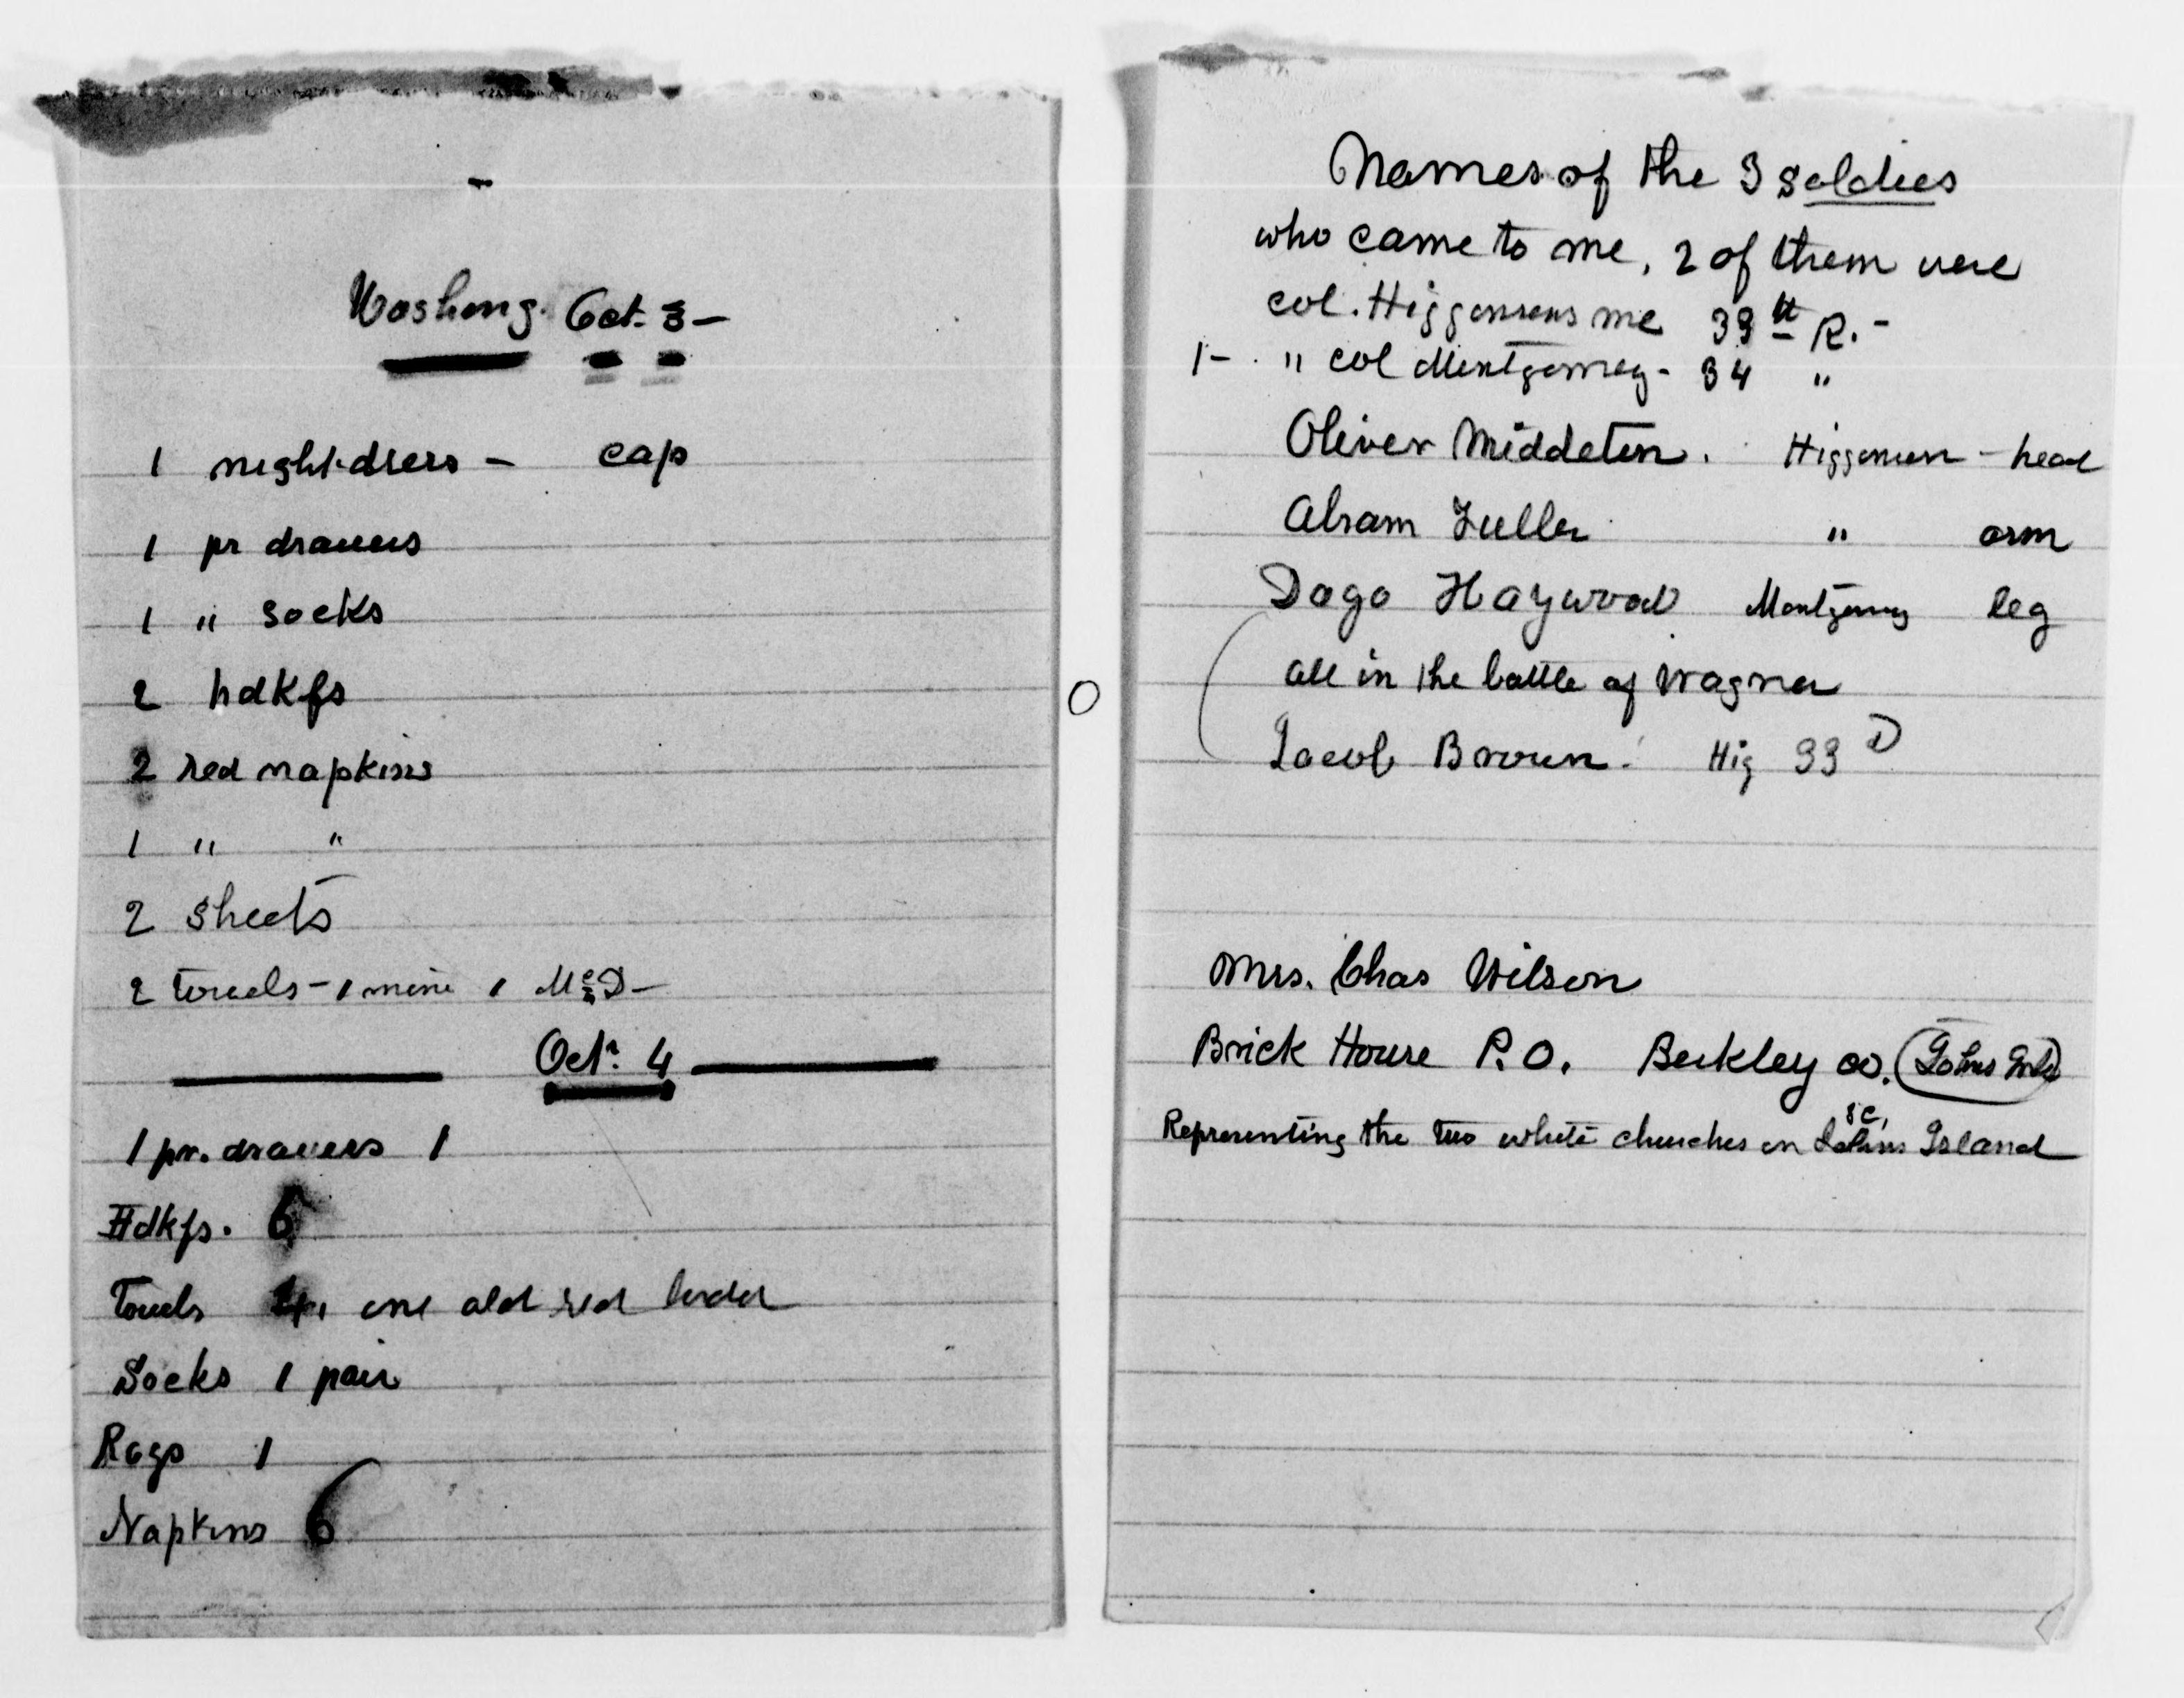 Washing. Oct. 3 —
1 night-dress — cap
1 pr drawers
1 " socks
2 hdkfs
2 red napkins
1 " "
2 sheets
2 towels - 1 mine 1 McD —
Oct. 4
1 pr. drawers 1
Hdkfs. 6
Towels 4, one old red
Socks 1 pair
Rags 1
Napkins 6
Names of the 3 soldies
who came to me, 2 of them were
col. Higgensons me 33 R. -
1 - " col Montgomey - 34 "
Oliver Middleton. Higgenson - head
Abram Fuller " arm
Dago Haywood Montgomy leg
all in the battle of Wagner
Jacob Brown. Hig 33 D
Mrs. Chas Wilson
Brick House P.O. Berkley co. (Johns Isld)
Representing the two white churches on Johns Island S C,